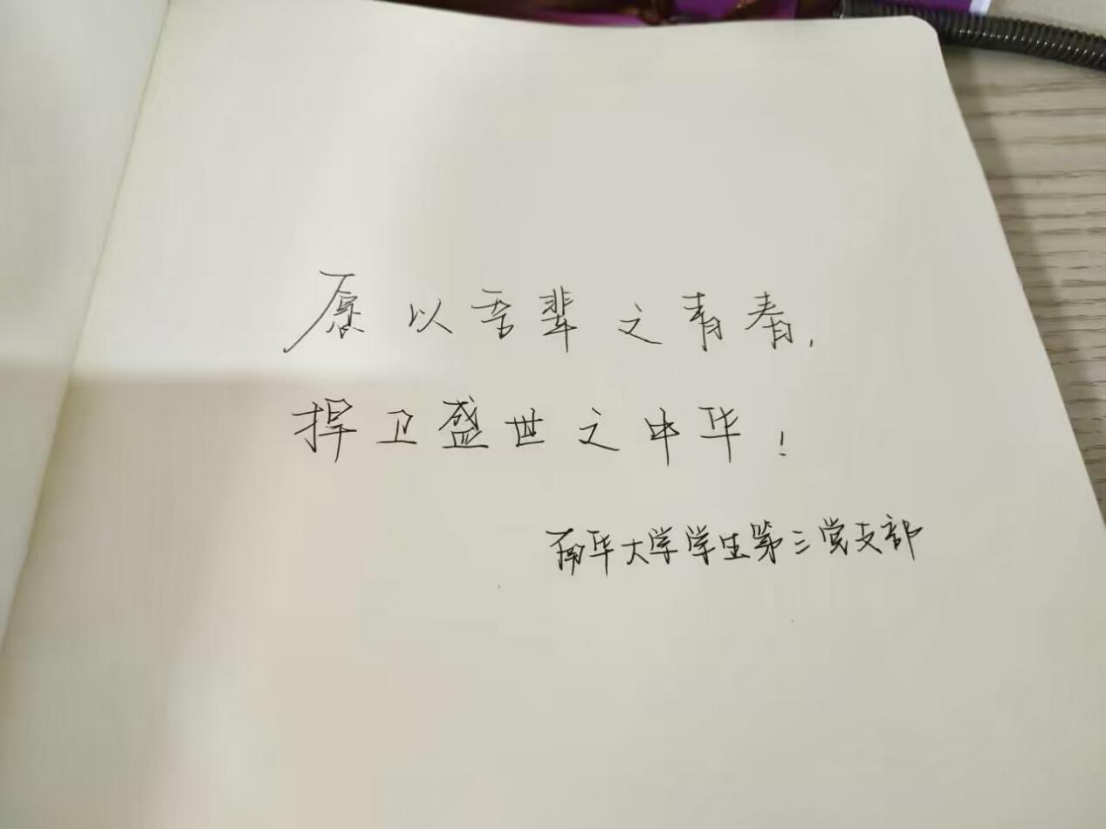 愿以吾辈之青春,
捍卫盛世之中华!
南华大学学生第三党支部